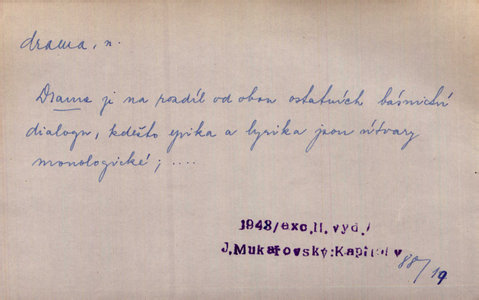 drama, n.
Drama je na rozdíl od obou ostatních básnictví
dialogu, kdežto epika a lyrika jsou útvary
monologické; ....
1948/exc.II.vyd./
J.Mukařovský:Kapitol v
88/19